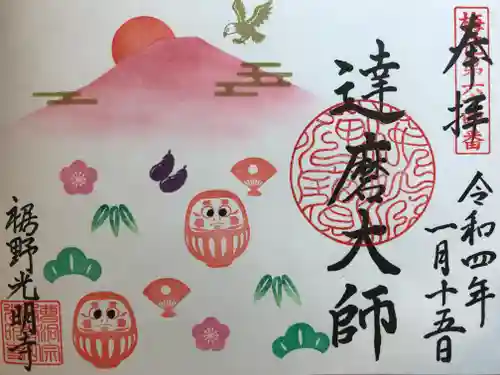 奉拝
達磨大師
令和四年
一月十五日
裾野光明寺